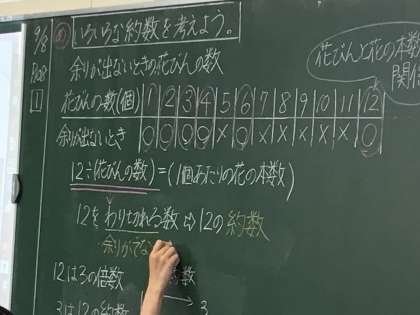 9/8 め いろいろな約数を考えよう。
余りが出ないときの花びんの数
花びんと花の本数
関係
1
花びんの数(個) 1 2 3 4 5 6 7 8 9 10 11 12
余りが出ないとき ○ ○ ○ ○ × ○ × × × × × ○
12÷(花びんの数)=(1個あたりの花の本数)
12をわりきれる数⇨12の約数
余りがでない
12は3の倍数
数
3は12の約数
3